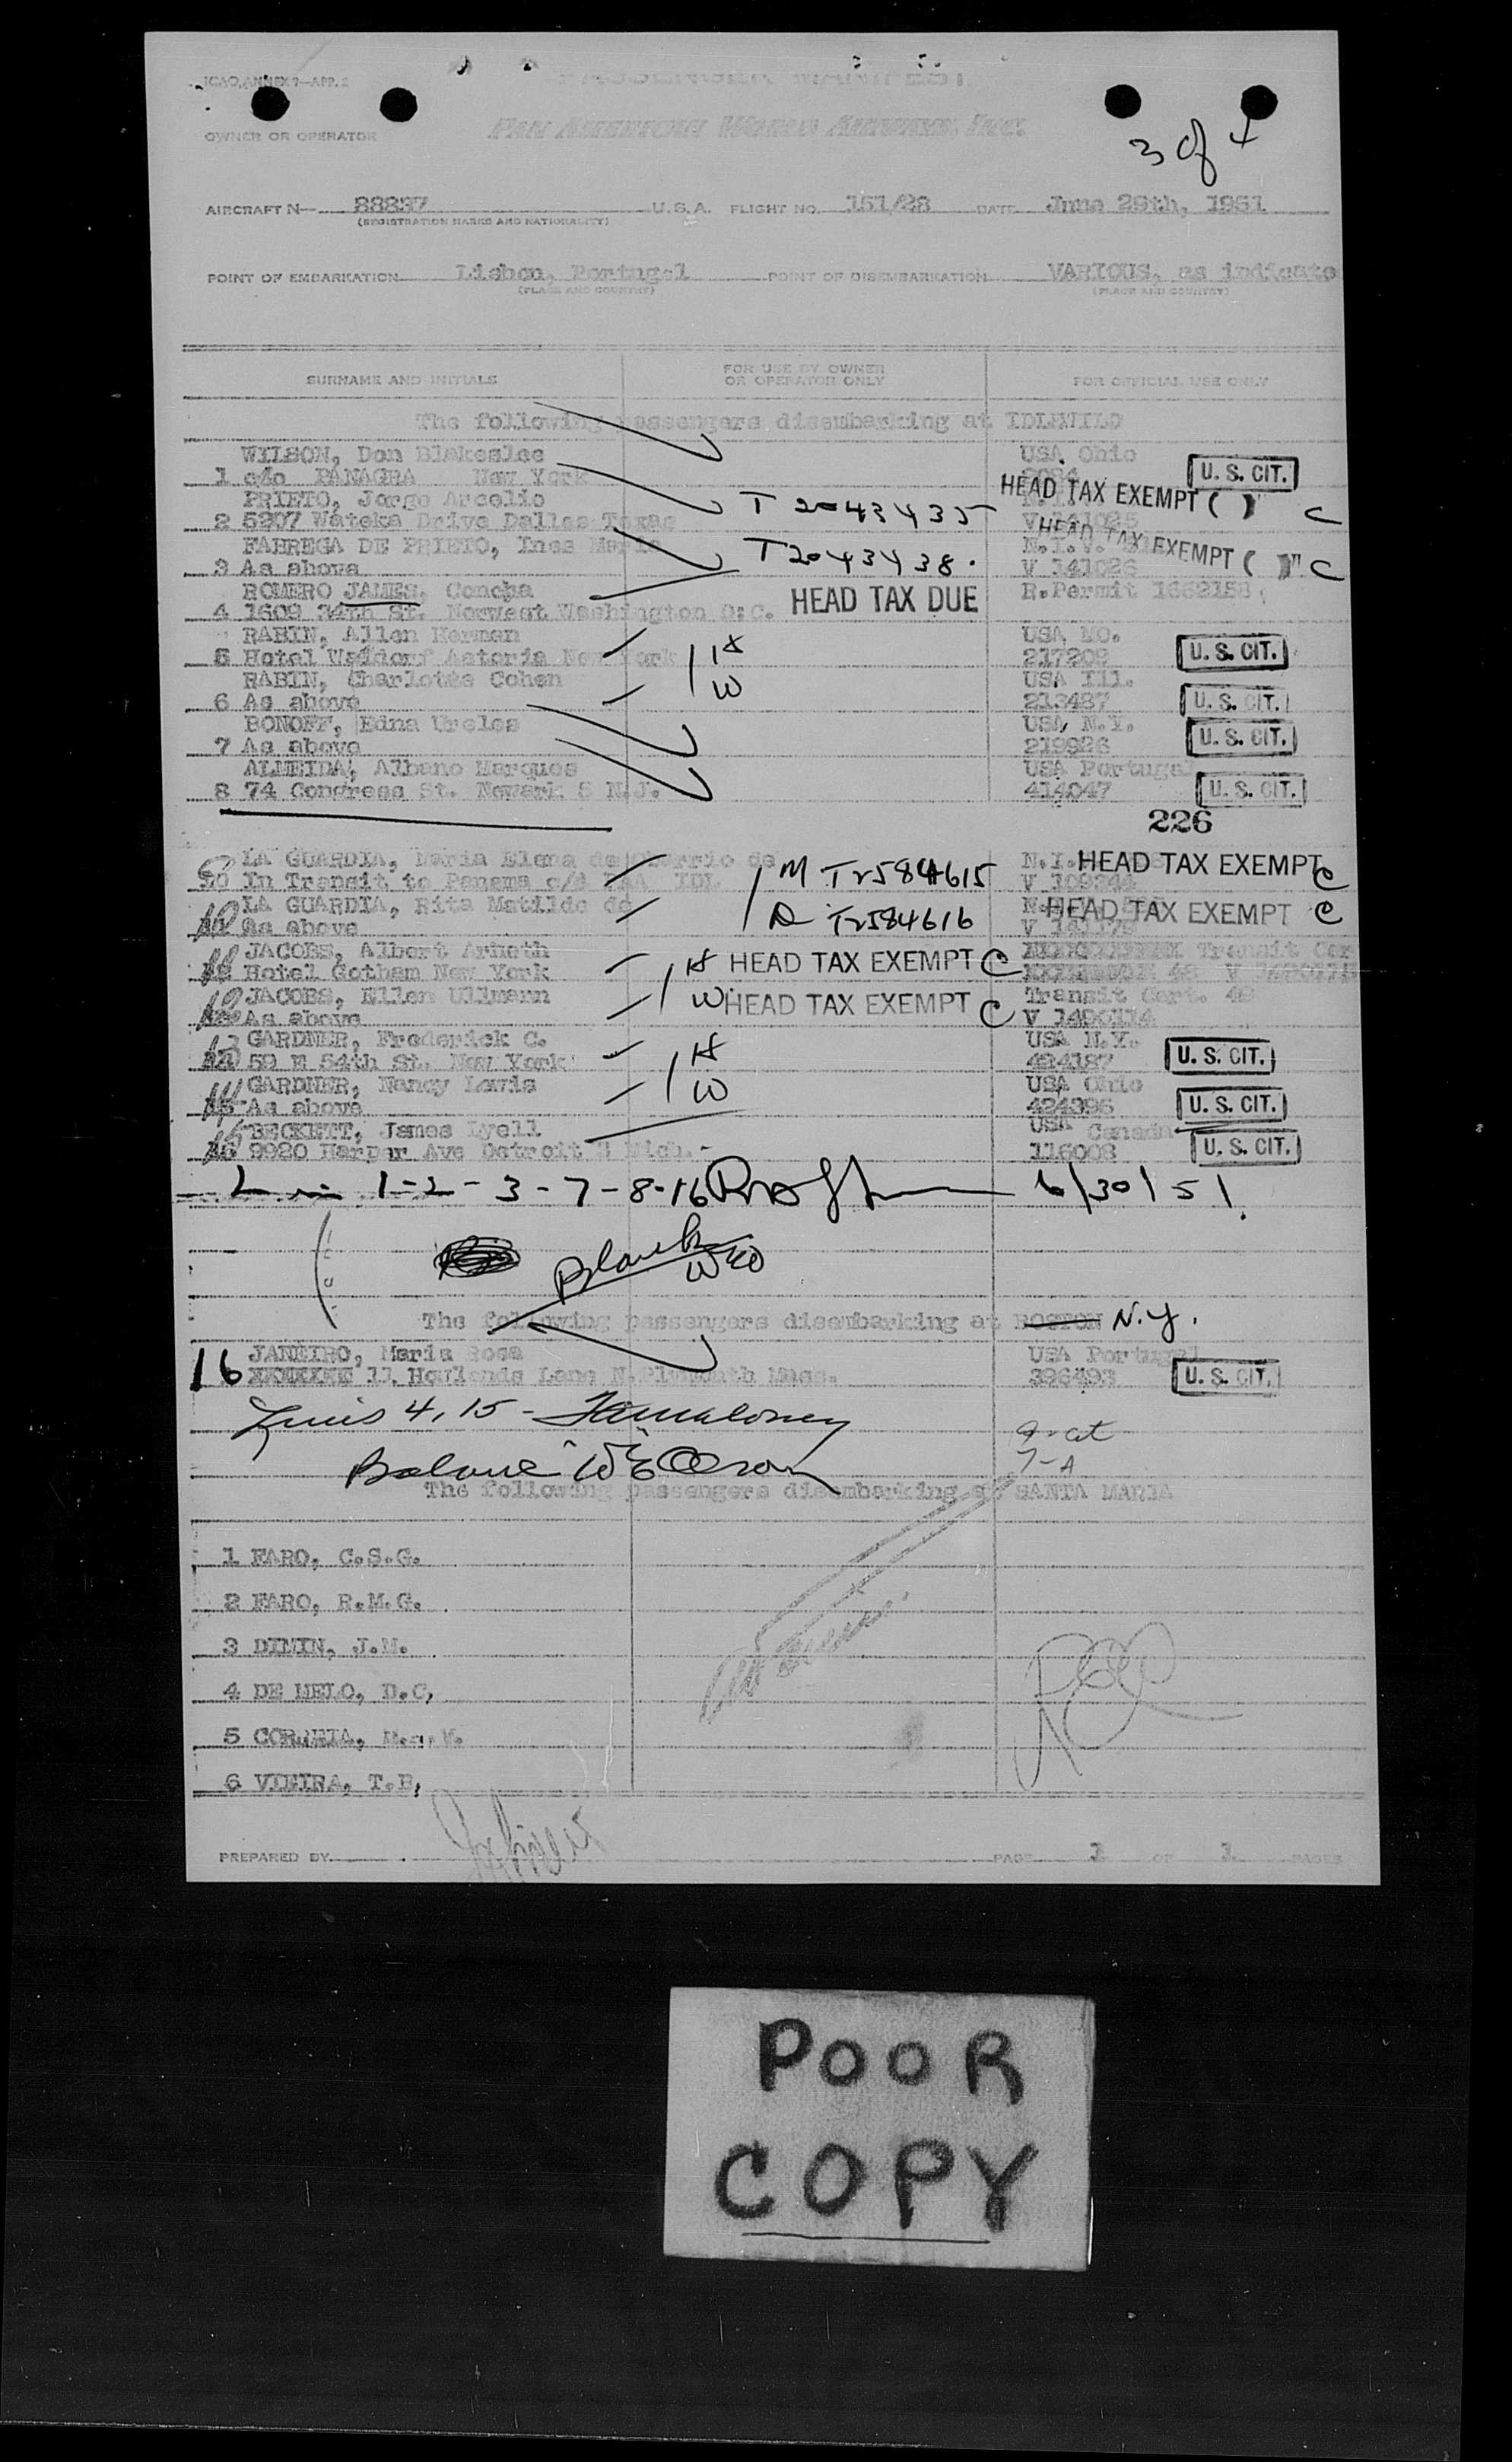 ICAO, ANNEX 9—APP. 2
PASSENGER MANIFEST
OWNER OR OPERATOR PAN AMERICAN WORLD AIRWAYS, INC.
3 of 4
AIRCRAFT N— 88837 U.S.A. FLIGHT NO. 151/28 DATE June 29th, 1951
(REGISTRATION MARKS AND NATIONALITY)
POINT OF EMBARKATION Lisbon, Portugal POINT OF DISEMBARKATION VARIOUS, as indicate
(PLACE AND COUNTRY) (PLACE AND COUNTRY)
SURNAME AND INITIALS FOR USE BY OWNER OR OPERATOR ONLY FOR OFFICIAL USE ONLY
The following passengers disembarking at IDLEWILD
WILSON, Don Blakeslee USA Ohio
1 c/o PANAGRA New York U.S. CIT.
PRIETO, Jorge Arcelio T 2043435 HEAD TAX EXEMPT ( ) C
2 5207 Wateka Drive Dallas Texas
FABREGA DE PRIETO, Ines Maria T2043438. N.I.V. HEAD TAX EXEMPT ( ) C
3 As above V 141026
ROMERO JAMES, Concha R.Permit 1662158
4 1609 34th St. Norwest Washington D.C. HEAD TAX DUE
RABIN, Allen Herman USA MO.
5 Hotel Waldorf Astoria New York H 217209 U.S. CIT.
RABIN, Charlotte Cohen W USA Ill.
6 As above 213487 U.S. CIT.
BONOFF, Edna Ureles USA, N.Y.
7 As above 219926 U.S. CIT.
ALMEIDA, Albano Marques USA Portugal
8 74 Congress St. Newark 5 N.J. 414047 U.S. CIT.
226
LA GUARDIA, Maria Elena de de M T2584615 N.I. HEAD TAX EXEMPT C
10 In Transit to Panama c/o IDL
LA GUARDIA, Rita Matilde de D T2584616 HEAD TAX EXEMPT C
As above
JACOBS, Albert H HEAD TAX EXEMPT C Transit Cer
Hotel Gotham New York
JACOBS, Ellen Ullmann W HEAD TAX EXEMPT C Transit Cert. 49
As above
GARDNER, Frederick C. H USA N.Y.
59 E 54th St. New York 424187 U.S. CIT.
GARDNER, Nancy Lewis W USA Ohio
As above 424396 U.S. CIT.
BECKETT, James Lyell USA Canada
9920 Harper Ave Detroit Mich. 116008 U.S. CIT.
1-2-3-7-8-16 6/30/51
Blank
The following passengers disembarking at BOSTON N.Y.
JANEIRO, Maria Rosa USA Portugal
16 11 Howlands Lane N.Plymouth Mass. 396493 U.S. CIT.
Lines 4, 15 -
Balance
7-A
The following passengers disembarking at SANTA MARIA
1 FARO, C.S.G.
2 FARO, R.M.G.
3 DIMIN, J.M.
4 DE MELO, D.C,
5 CORREIA,
6 VIEIRA, T.B,
PREPARED BY PAGE 1 OF 1 PAGES
POOR
COPY